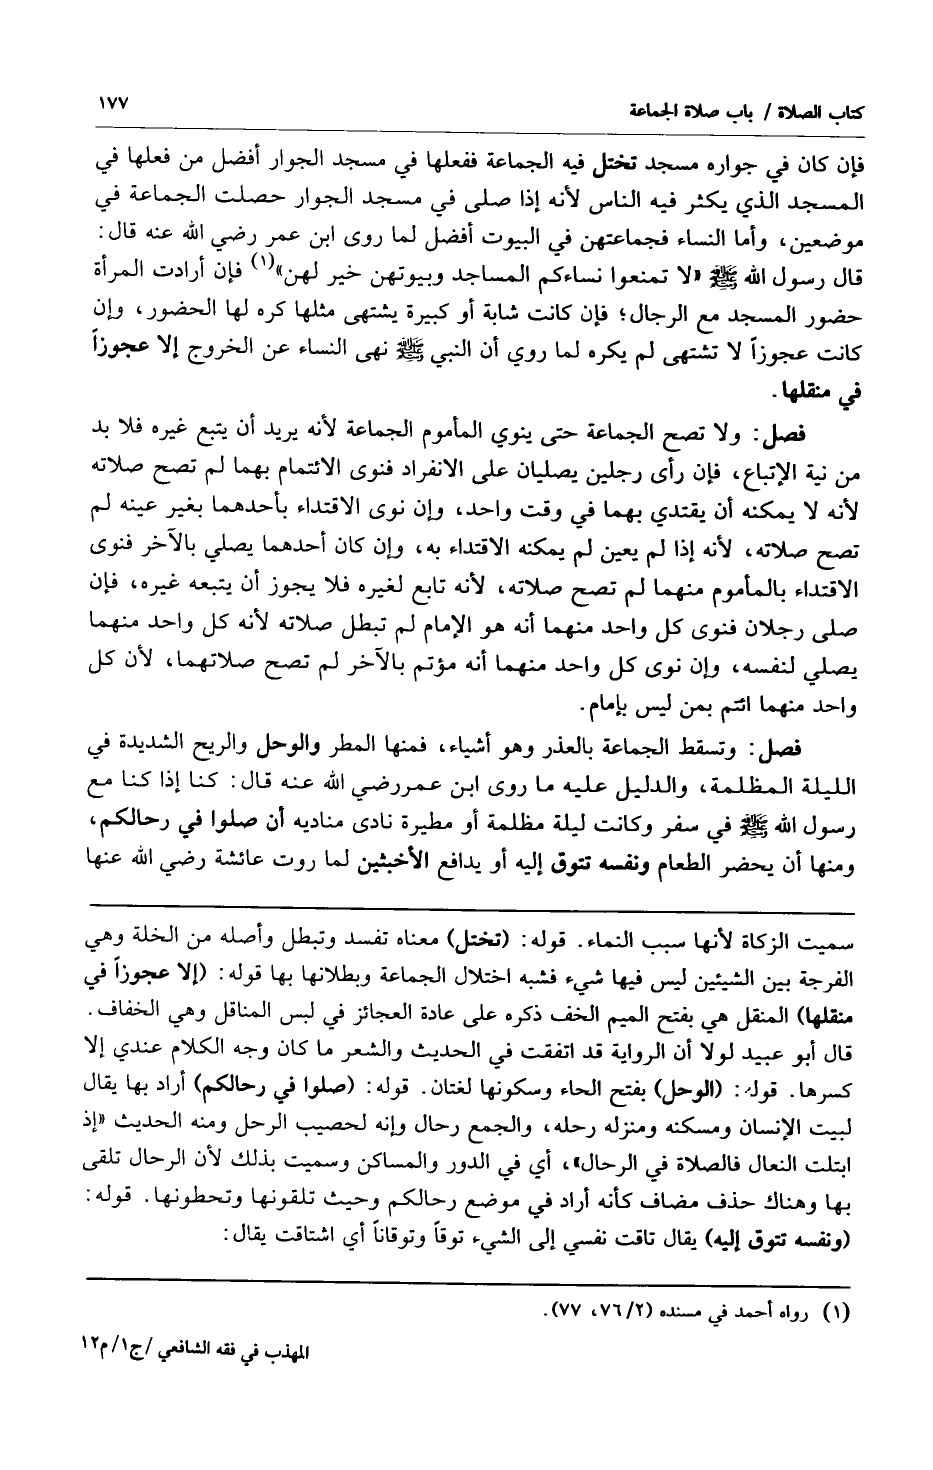 كتاب الصلاة / باب صلاة الجماعة ١٧٧
فإن كان في جواره مسجد تختل فيه الجماعة ففعلها في مسجد الجوار أفضل من فعلها في
المسجد الذي يكثر فيه الناس لأنه إذا صلى في مسجد الجوار حصلت الجماعة في
موضعين، وأما النساء فجماعتهن في البيوت أفضل لما روى ابن عمر رضي الله عنه قال:
قال رسول الله ﷺ «لا تمنعوا نساءكم المساجد وبيوتهن خير لهن»(١) فإن أرادت المرأة
حضور المسجد مع الرجال؛ فإن كانت شابة أو كبيرة يشتهى مثلها كره لها الحضور، وإن
كانت عجوزاً لا تشتهى لم يكره لما روي أن النبي ﷺ نهى النساء عن الخروج إلا عجوزاً
في منقلها.
فصل: ولا تصح الجماعة حتى ينوي المأموم الجماعة لأنه يريد أن يتبع غيره فلا بد
من نية الإتباع، فإن رأى رجلين يصليان على الانفراد فنوى الائتمام بهما لم تصح صلاته
لأنه لا يمكنه أن يقتدي بهما في وقت واحد، وإن نوى الاقتداء بأحدهما بغير عينه لم
تصح صلاته، لأنه إذا لم يعين لم يمكنه الاقتداء به، وإن كان أحدهما يصلي بالآخر فنوى
الاقتداء بالمأموم منهما لم تصح صلاته، لأنه تابع لغيره فلا يجوز أن يتبعه غيره، فإن
صلى رجلان فنوى كل واحد منهما أنه هو الإمام لم تبطل صلاته لأنه كل واحد منهما
يصلي لنفسه، وإن نوى كل واحد منهما أنه مؤتم بالآخر لم تصح صلاتهما، لأن كل
واحد منهما ائتم بمن ليس بإمام.
فصل: وتسقط الجماعة بالعذر وهو أشياء، فمنها المطر والوحل والريح الشديدة في
الليلة المظلمة، والدليل عليه ما روى ابن عمررضي الله عنه قال: كنا إذا كنا مع
رسول الله ﷺ في سفر وكانت ليلة مظلمة أو مطيرة نادى مناديه أن صلوا في رحالكم،
ومنها أن يحضر الطعام ونفسه تتوق إليه أو يدافع الأخبثين لما روت عائشة رضي الله عنها
سميت الزكاة لأنها سبب النماء. قوله: (تختل) معناه تفسد وتبطل وأصله من الخلة وهي
الفرجة بين الشيئين ليس فيها شيء فشبه اختلال الجماعة وبطلانها بها قوله: (إلا عجوزاً في
منقلها) المنقل هي بفتح الميم الخف ذكره على عادة العجائز في لبس المناقل وهي الخفاف.
قال أبو عبيد لولا أن الرواية قد اتفقت في الحديث والشعر ما كان وجه الكلام عندي إلا
كسرها. قوله: (الوحل) بفتح الحاء وسكونها لغتان. قوله: (صلوا في رحالكم) أراد بها يقال
لبيت الإنسان ومسكنه ومنزله رحله، والجمع رحال وإنه لحصيب الرحل ومنه الحديث «إذ
ابتلت النعال فالصلاة في الرحال»، أي في الدور والمساكن وسميت بذلك لأن الرحال تلقى
بها وهناك حذف مضاف كأنه أراد في موضع رحالكم وحيث تلقونها وتحطونها. قوله:
(ونفسه تتوق إليه) يقال تاقت نفسي إلى الشيء توقاً وتوقاناً أي اشتاقت يقال:
(١) رواه أحمد في مسنده (٧٦/٢، ٧٧).
المهذب في فقه الشافعي /ج١/م١٢